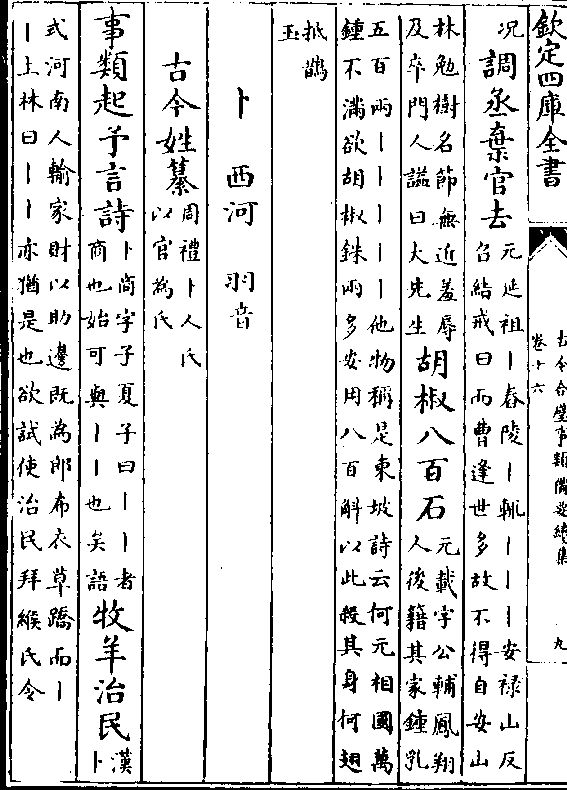 欽定四庫全書
古今合璧事類備要續集
卷十六
九
況調丞棄官去元延祖丨舂陵丨輒丨丨丨安禄山反
召結戒曰而曹逢世多故不得自安山
林勉樹名節無近羞辱
及卒門人諡曰大先生胡椒八百石元載字公輔鳳翔
人後籍其家鍾乳
五百兩丨丨丨丨丨他物稱是東坡詩云何元相國萬
鍾不滿欲胡椒銖兩多安用八百斛以此殺其身何翅
抵鵲
玉
卜 西河 羽音
古今姓纂周禮卜人氏
以官為氏
事類起予言詩卜商字子夏子曰丨丨者
商也始可與丨丨也矣語牧羊治民漢
卜
式河南人輸家財以助邊既為郎布衣草蹻而丨
丨上林曰丨丨亦猶是也欲試使治民拜緱氏令